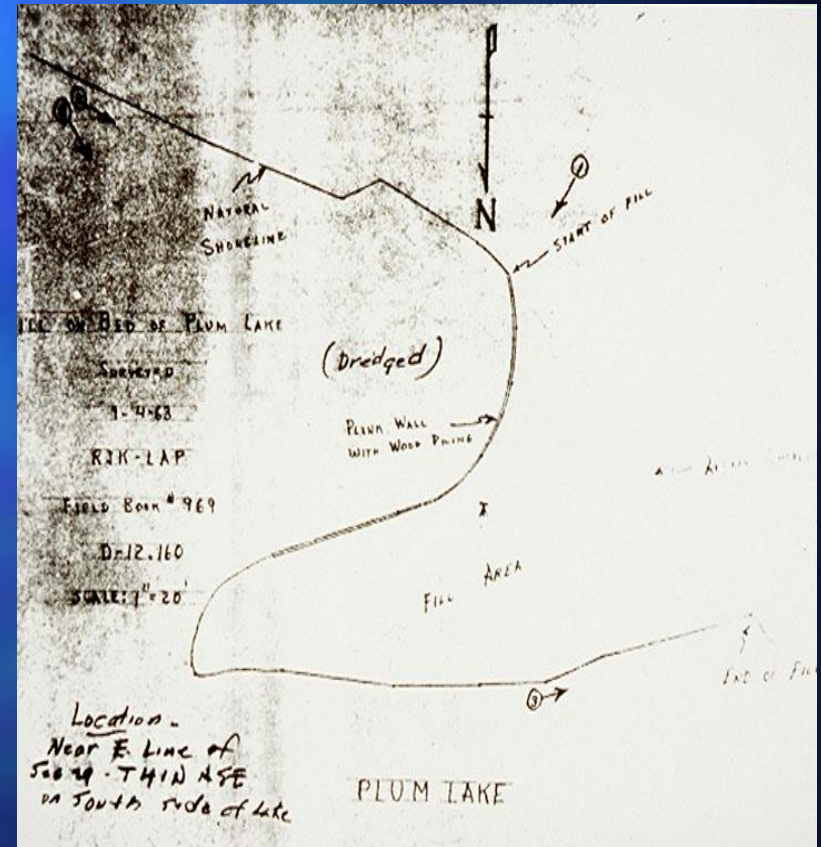 N
①
NATURAL
SHORELINE
START OF FILL
FILL ON BED OF PLUM LAKE
SURVEYED
9-4-63
RJK-LAP
FIELD BOOK # 969
D-12.160
SCALE: 1"=20'
(Dredged)
PLANK WALL
WITH WOOD PILING
FILL AREA
END OF FILL
③
Location -
Near E. Line of
on South side of Lake
PLUM LAKE